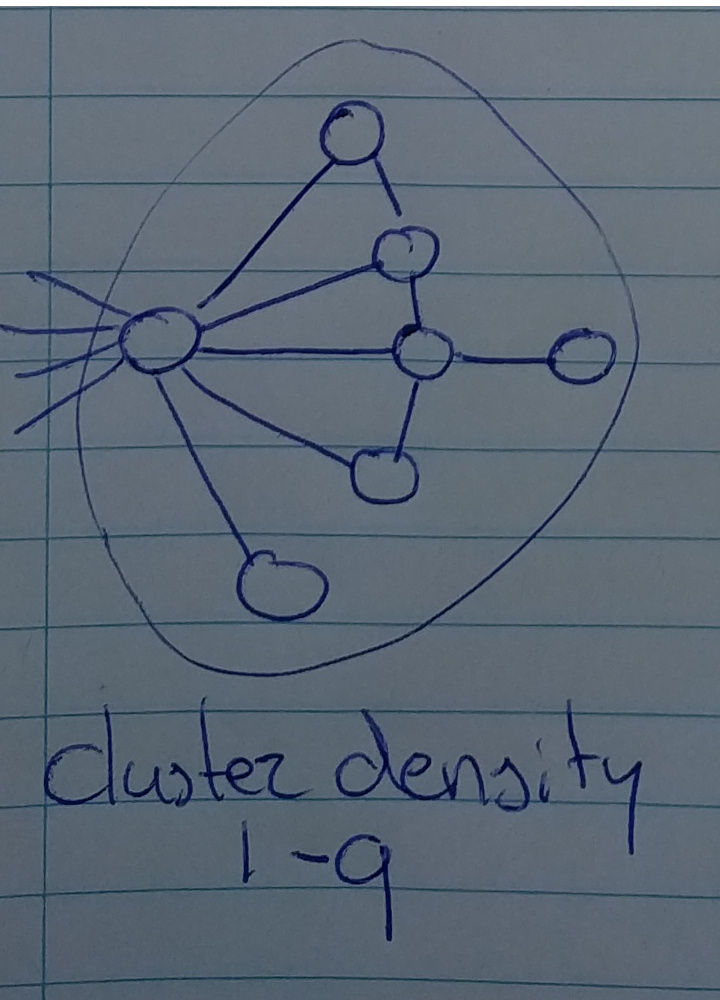 cluster density
1-q